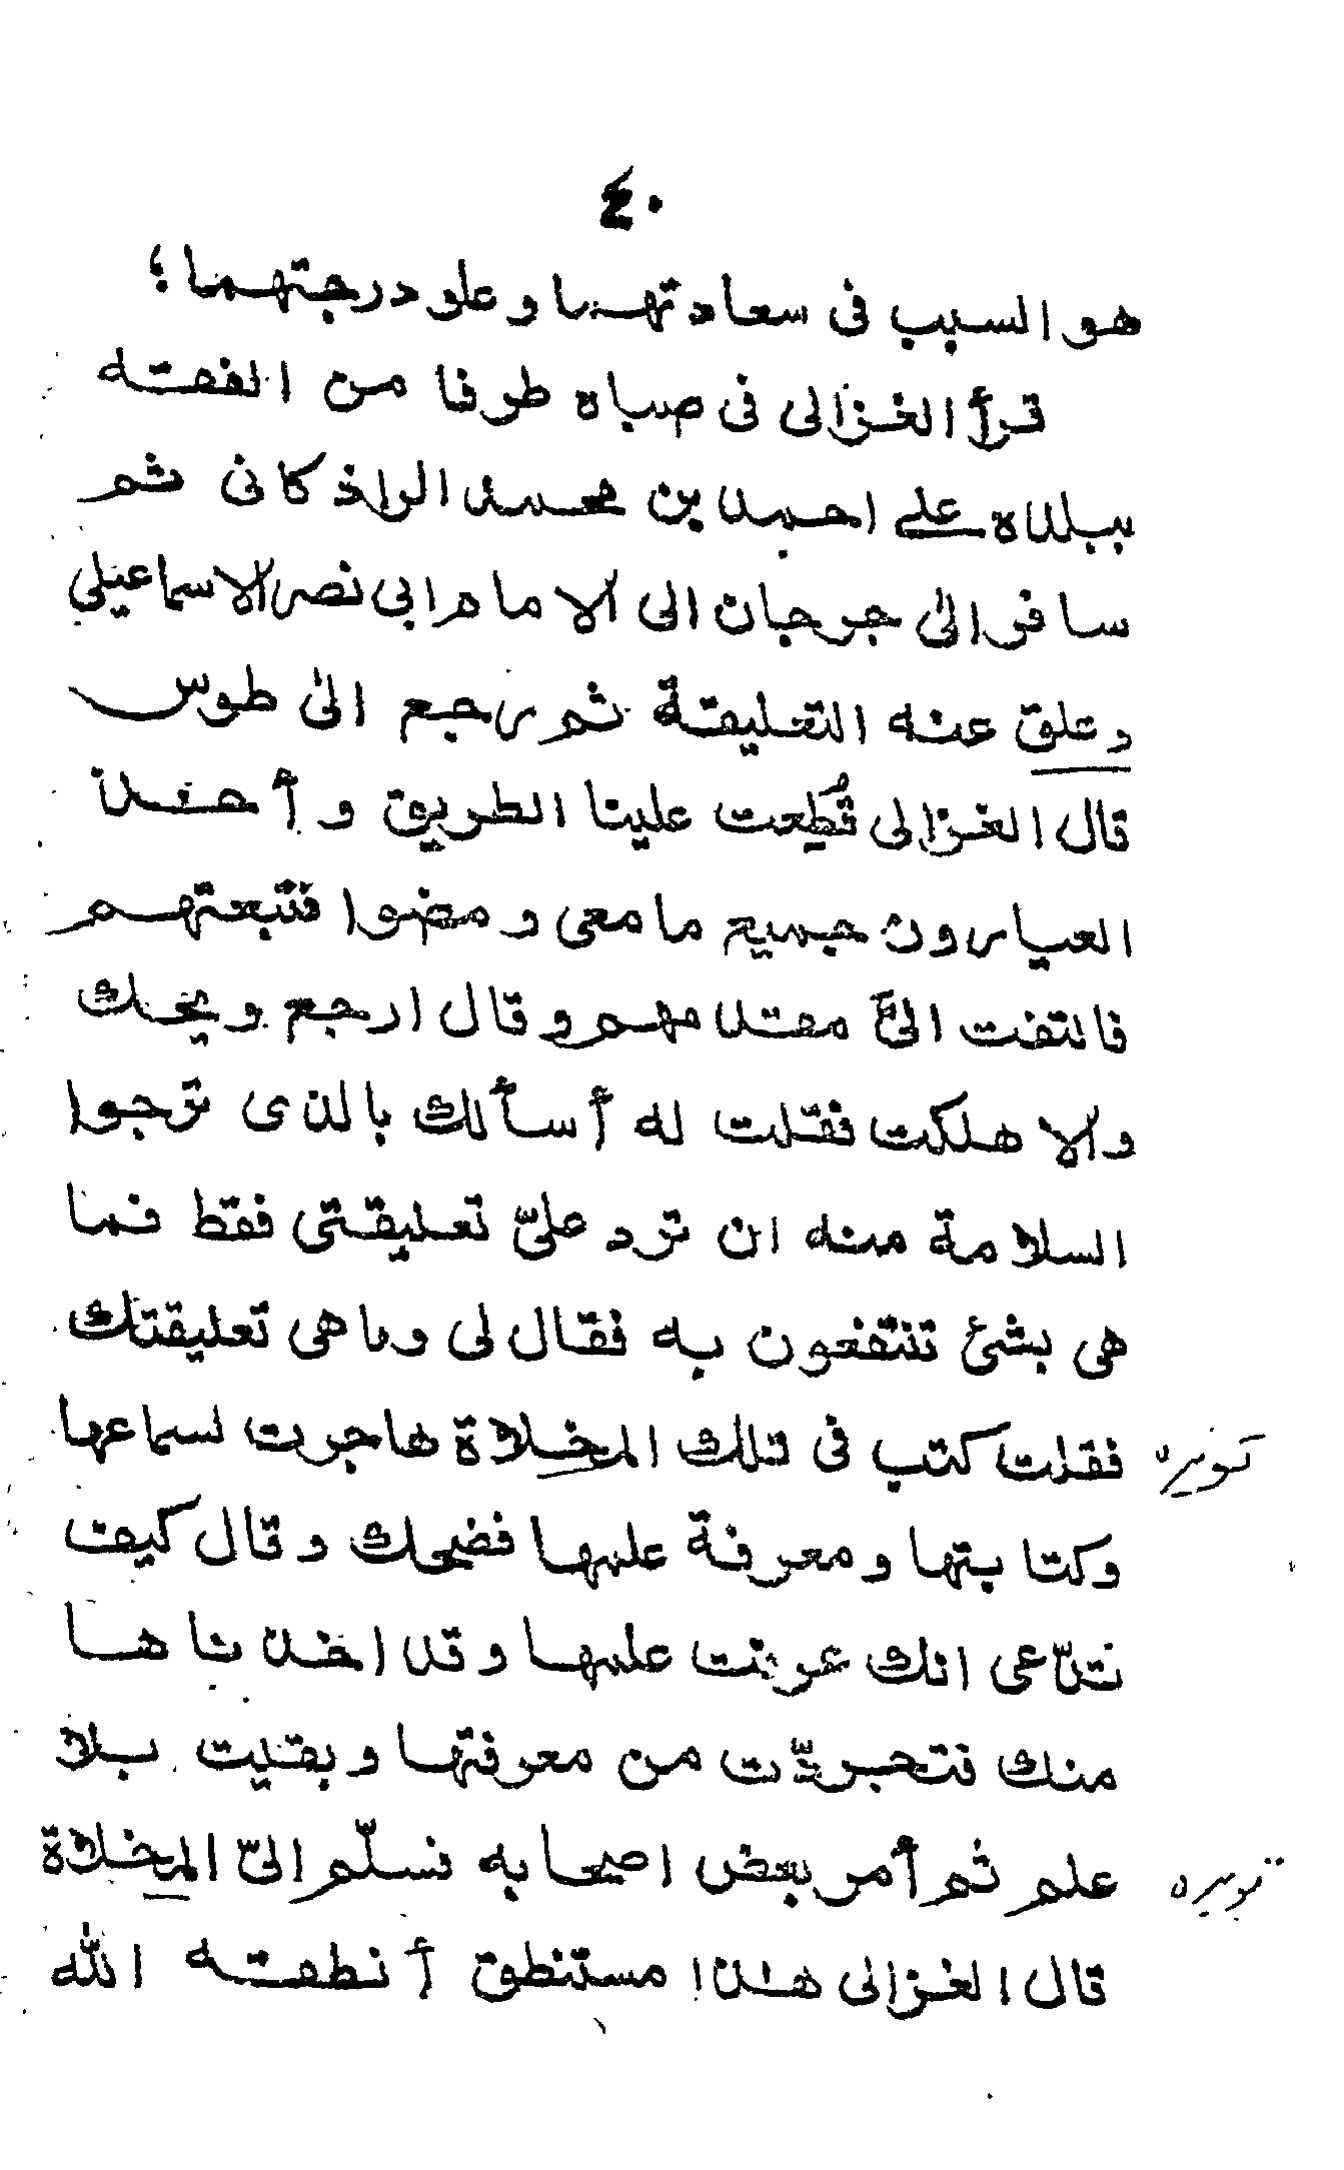 ٤٠
هو السبب فى سعادتهما وعلو درجتهما؛
قرأ الغزالى فى صباه طرفا من الفقه
ببلده على احمد بن محمد الراذكانى ثم
سافر الىٰ جرجان الى الامام ابى نصر الاسماعيلي
وعلق عنه التعليقة ثم رجع الىٰ طوس
قال الغزالى قُطِعت علينا الطريق و أخذ
العيارون جميع ما معى و مضوا فتبعتهم
فالتفت الىَّ مقدمهم وقال ارجع ويحك
والا هلكت فقلت له أسألك بالذى ترجوا
السلامة منه ان ترد علىّ تعليقتى فقط فما
هى بشئ تنتفعون به فقال لى وما هى تعليقتك
فقلت كتب فى تلك المخلاة هاجرت لسماعها
وكتابتها ومعرفة علمها فضحك وقال كيف
تدّعى انك عرفت علمها وقد اخذناها
منك فتجردّت من معرفتها وبقيت بلا
علم ثم أمر بعض اصحابه فسلّم الىّ المخلاة
قال الغزالى هذا مستنطق أنطقه الله